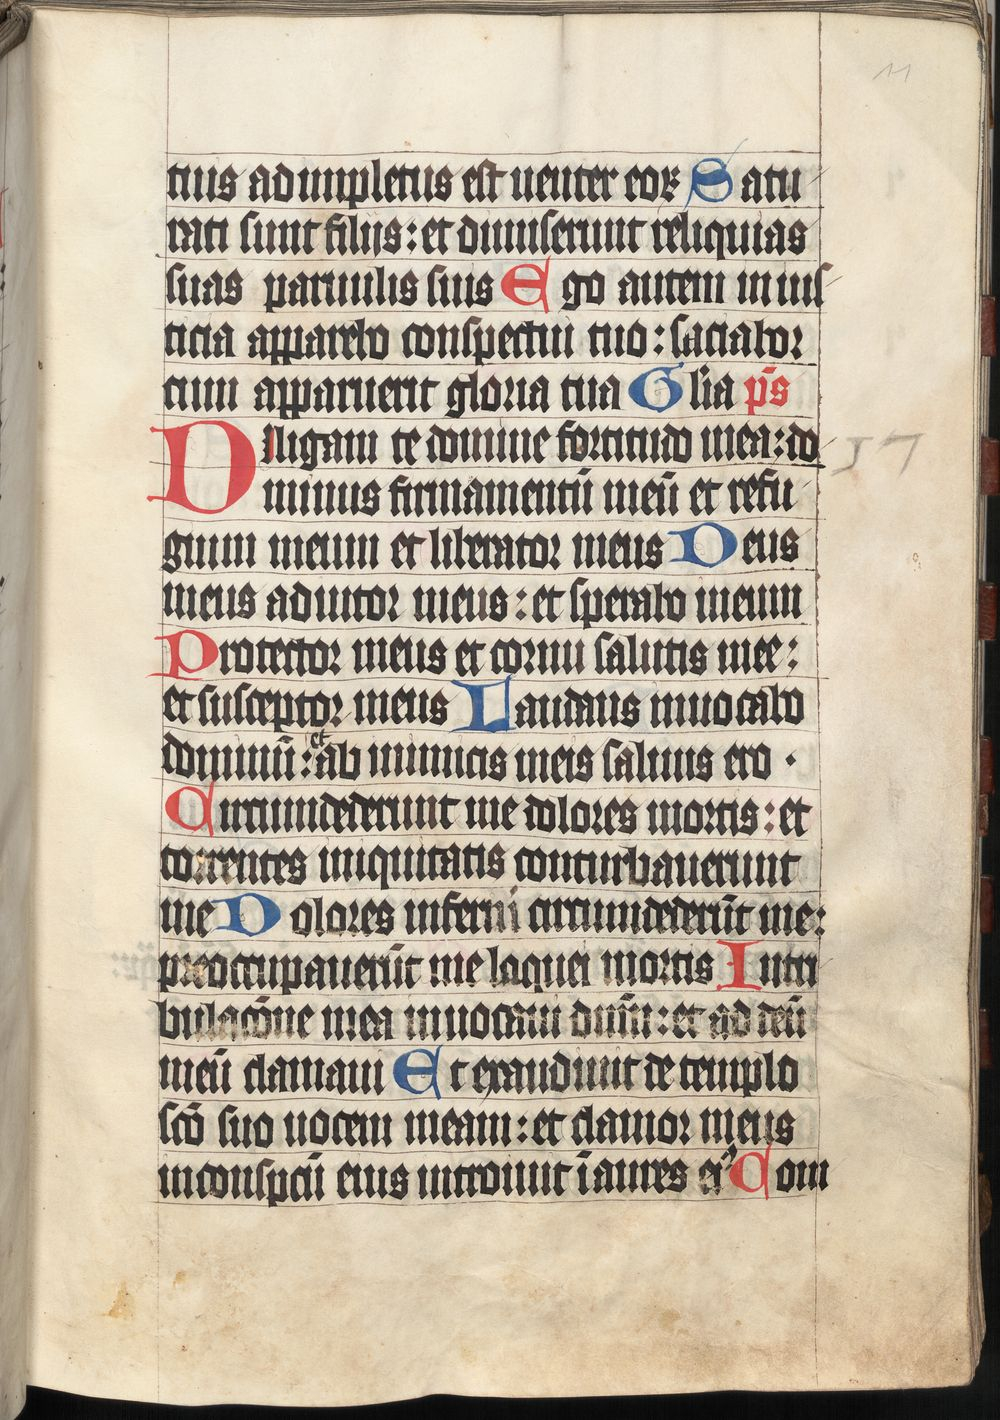 11
tuis adimpletus est uenter eoꝝ Satu
rati sunt filijs: et dimiserunt reliquias
suas paruulis suis Ego autem in ius
ticia apparebo conspectui tuo: saciabor
cum apparuerit gloria tua Glīa p̄s
Diligam te domine fortitudo mea: do 17
minus firmamentū meū et refu
gium meum et liberator meus Deus
meus adiutor meus: et sperabo in eum
Protector meus et cornu salutis mee:
et susceptor meus Laudans inuocabo
dominū: et ab inimicis meis saluus ero ·
Circumdederunt me dolores mortis: et
torrentes iniquitatis conturbauerunt
me Dolores inferni circumdederūt me:
preoccupauerūt me laquei mortis In tri
bulacōne mea inuocaui dn̄m: et ad deū
meū clamaui Et exaudiuit de templo
scō suo uocem meam: et clamor meus
in conspcū eius introiuit ī aures ei᾽ Com